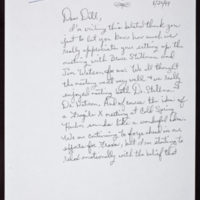 5/21/89
Dear Bill,
I'm writing this belated thank you
just to let you know how much we
really appreciate you setting up the
meeting with Bruce Stillman and
Jim Watson for us. We all thought
the meeting went very well & we really
enjoyed meeting both Dr. Stillman &
Dr. Watson. And of course the idea of
a Fragile X meeting at Cold Spring
Harbor sounds like a wonderful idea.
We are continuing to forge ahead in our
efforts for Fraxa, but I am starting to
reach emotionally with the belief that